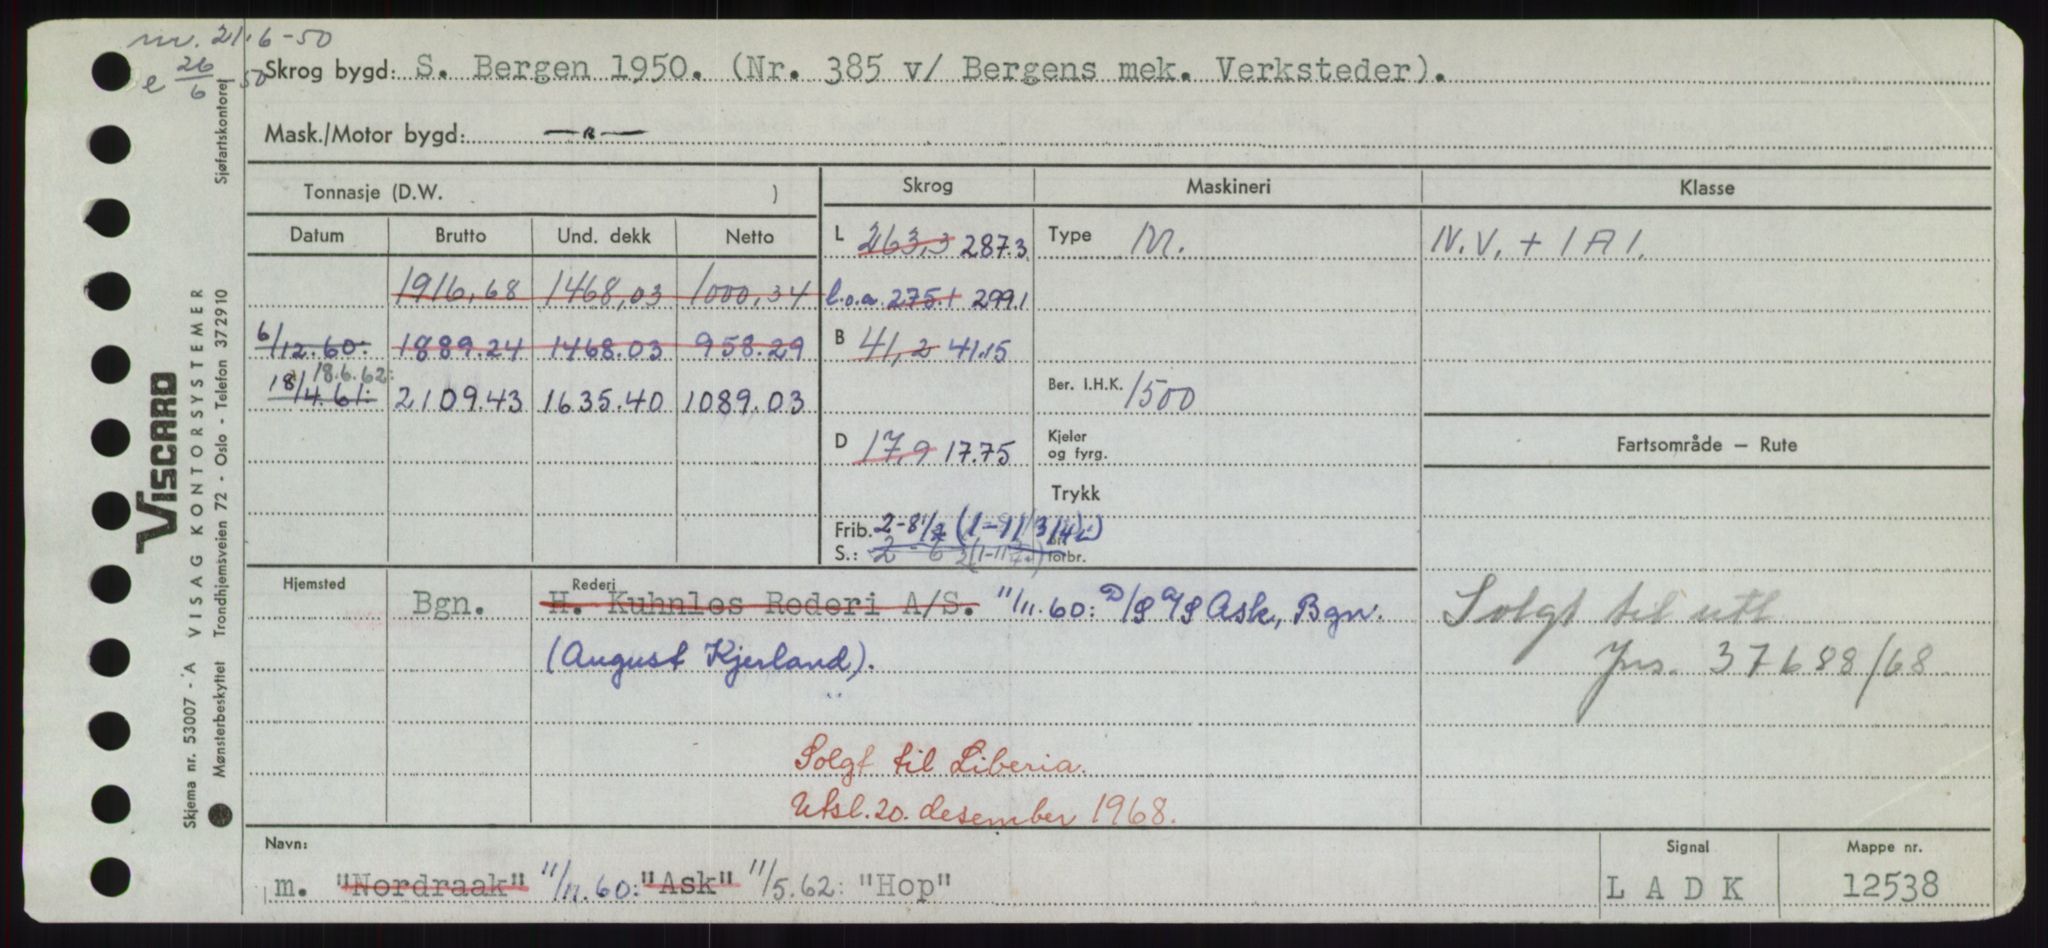 nr. 21.6-50
e 26/6 50
Skrog bygd: S. Bergen 1950. (Nr. 385 v/ Bergens mek. Verksteder).
Mask./Motor bygd: —"—
Tonnasje (D.W. )
Skrog
Maskineri
Klasse
Datum Brutto Und. dekk Netto
L 263,3 287.3
Type M.
N.V. + 1A1.
1916,68 1468,03 1000,34
l.o.a. 275.1 299.1
6/12.60. 1889.24 1468.03 958.29
B 41,2 41.15
18.6.62:
18/4.61. 2109.43 1635.40 1089.03
Ber. I.H.K. 1500
Fartsområde — Rute
D 17,9 17.75
Kjeler
og fyrg.
Trykk
Frib. 2-8 1/2 (1-9 1/3/4")
S.: 2-6
forbr.
Hjemsted Bgn.
Rederi
H. Kuhnles Rederi A/S. 11/11.60: D/S A/S Ask, Bgn.
(August Kjerland).
Solgt til utl
Jrs. 37688/68
Solgt til Liberia.
Utsl. 20. desember 1968.
Navn:
m. "Nordraak" 11/11.60: "Ask" 11/5.62: "Hop"
Signal
L A D K
Mappe nr.
12538
VISCARD
Skjema nr. 53007 - A VISAG KONTORSYSTEMER
Mønsterbeskyttet Trondhjemsveien 72 - Oslo - Telefon 372910
Sjøfartskontoret